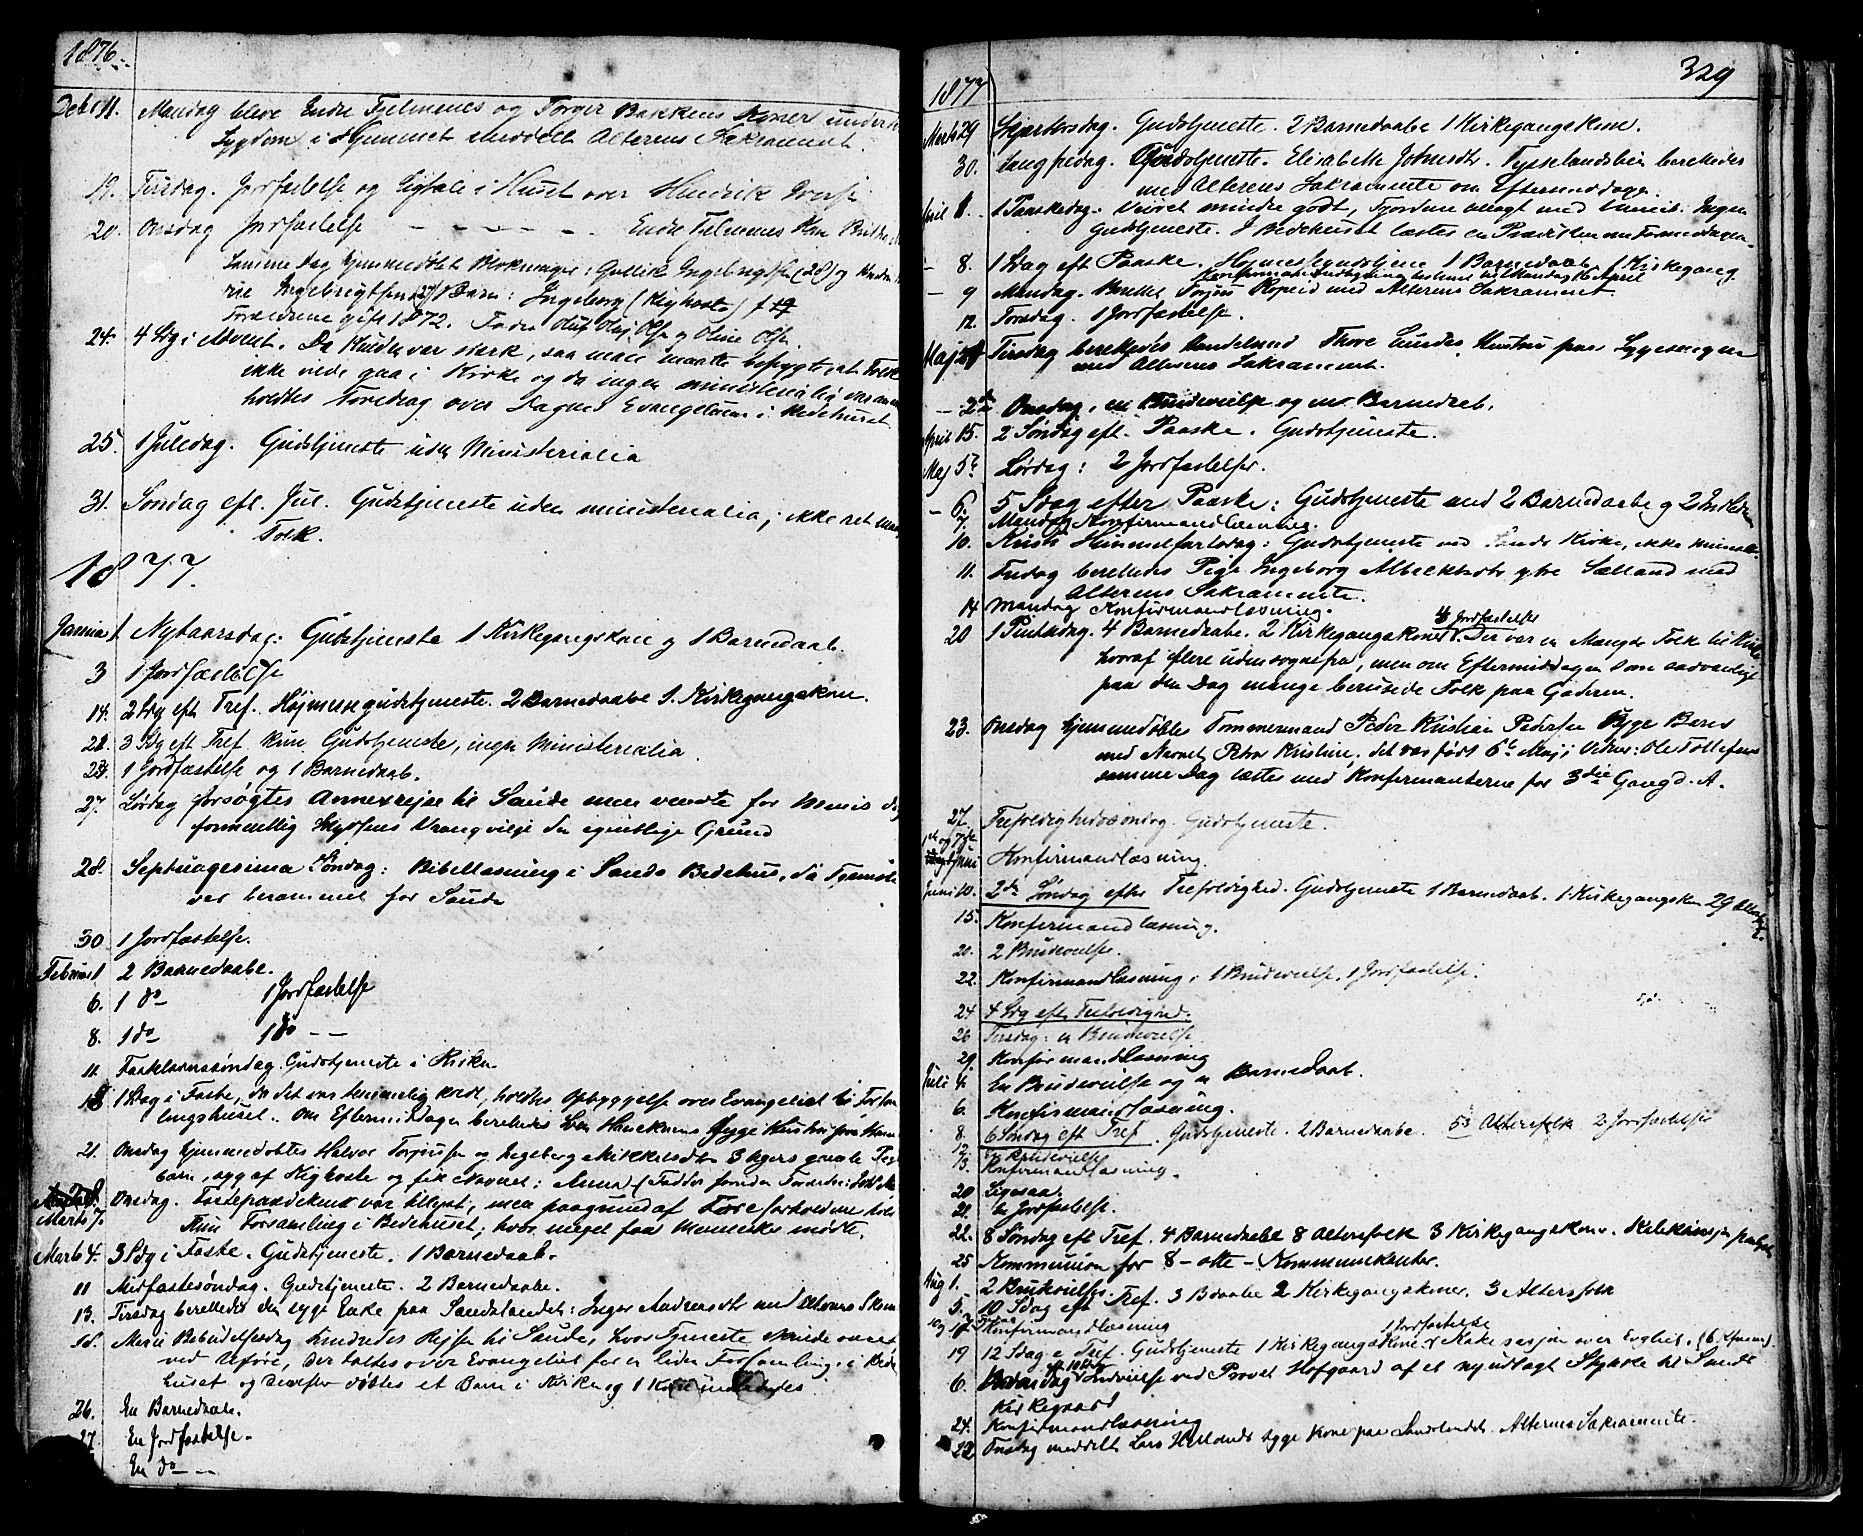 1876.
Debr 11. Mandag bleve Endre Fjelmenes og Torger Bakkens Koner under
Sygdom i Hjemmet meddelt Alterens Sakrament.
19. Tirsdag. Jordfæstelse og Ligtale i Huset over Hendrik
20. Onsdag Jordfæstelse — — — — — Endre Fjelmenes
Samme Dag hjemmedøbt Gullik Ingebrigtsen (28) og
Ingebrigtsen 1 Barn: Ingeborg (Kighoste)
Forældrene gift 1872. Fadder Olsen og Oline Olsen.
24. 4 Sdg i Advent. Da Kulden var stærk, saa man maatte befrygte, at Folk
ikke vilde gaa i Kirke og da ingen ministerialia var
holdtes Foredrag over Dagens Evangelium i Bedehuset
25. 1 Juledag. Gudstjeneste uden Ministerialia
31. Søndag eft. Jul. Gudstjeneste uden ministerialia; ikke ret
Folk.
1877.
Januar 1. Nytaarsdag: Gudstjeneste 1 Kirkegangskone og 1 Barnedaab.
3 1 Jordfæstelse
14. 2 Sdg eft Tref. Højmessegudstjeneste. 2 Barnedaabe 1. Kirkegangskone.
3 Sdg eft Tref. kun Gudstjeneste, ingen Ministerialia.
1 Jordfæstelse og 1 Barnedaab.
27. Lørdag forsøgtes Annexrejse til Saude men vendte for
formentlig Skydsens Vrangvilje den egentlige Grund
28. Septuagesima Søndag: Bibellæsning i Sands Bedehus, da Tjeneste
var berammet for Saude
30 1 Jordfæstelse.
Februar 1 2 Barnedaabe.
6. 1 do 1 Jordfæstelse
8. 1 do 1 do — —
11. Fastelavnssøndag. Gudstjeneste i Kirken.
18 1 Sdag i Faste, da det var temmelig koldt, holdtes Opbyggelse over Evangeliet i
om Efterm. Dagen berettedes syge Hustru
21. Onsdag hjemmedøbtes Halvor Torjussen og Ingeborg Mikkelsdtr 3 Ugers gamle
barn, syg af Kighoste og fik Navnet: Anna (Fadder foruden Forældre:
Marts 7. Onsdag. Fasteprædiken var tillyst, men paagrund af Føreforholdene
Forsamling i Bedehuset, hvor meget faa Mennesker mødte.
Marts 4. 3 Sdg i Faste. Gudstjeneste. 1 Barnedaab.
11 Midfastesøndag. Gudstjeneste. 2 Barnedaabe.
13. Tirsdag berettedes den syge Enke paa Sandslandet: Inger Andreasdtr med Alterens Sakram
18. Mariæ Bebudelsesdag hindredes Rejse til Saude, hvor Tjeneste skulde været
ved Uføre, der taltes over Evangeliet for en liden Forsamling i Bede
huset og derefter døbtes et Barn i Kirken og 1 Kone indlededes
26. En Barnedaab.
27. En Jordfæstelse.
En do — —
329
1877
Marts 29 Skjærtorsdag. Gudstjeneste. 2 Barnedaabe 1 Kirkegangskone.
30. Langfredag. Gudstjeneste. Elisabeth Johnsdtr. berettedes
med Alterens Sakramente om Eftermiddagen.
April 1. 1 Paaskedag. Veiret mindre godt, Fjordene belagt med Vanis. Ingen
Gudstjeneste. I Bedehuset læstes en Prædiken om Formiddagen.
— 8. 1 Sdag eft Paaske. Højmessegudstjen. 1 Barnedaab 1 Kirkegang.
Konfirmationsundervisning Mandag 16 April
— 9 Mandag. Torjus Kopeid med Alterens Sakrament.
12. Torsdag. 1 Jordfæstelse.
Maj 1 Tirsdag berettedes Handelsmd Thore Lundes Hustru paa Sygesengen
med Alterens Sakrament.
— 2den Onsdag, en Brudevielse og en Barnedaab.
April 15. 2 Søndag eft. Paaske. Gudstjeneste.
Maj 5te Lørdag: 2 Jordfæstelser.
— 6. 5 Sdag efter Paaske: Gudstjeneste med 2 Barnedaabe og 2 Indleden
7. Mandag Konfirmandlæsning.
10. Kristi Himmelfartsdag: Gudstjeneste ved Sands Kirke, ikke
11. Fredag berettedes Pige Ingeborg Albrektsdtr ytre Sælland med
Alterens Sakramente.
14 Mandag Konfirmandlæsning.
4 Jordfæstelser
20 1 Pintsdag. 4 Barnedaabe. 2 Kirkegangskoner. Der var en Mængde Folk til Kirke
hvoraf flere udensognsfra, men om Eftermiddagen som sædvanligt
paa den Dag mange berusede Folk paa Gaderne.
23. Onsdag hjemmedøbte Tømmermand Peder Kristian Pedersen syge Barn
med Navnet Kristine, det var født 6te Maj; Vidner: Ole Tollefsen
samme Dag læstes med Konfirmanterne for 3die Gang d. A.
27. Trefoldighedssøndag. Gudstjeneste.
1ste og 7de Juni Konfirmandlæsning.
Juni 10. 2den Søndag efter Trefoldighed. Gudstjeneste 1 Barnedaab. 1 Kirkegangskon 29 Altersf.
15. Konfirmandlæsning.
21. 2 Brudevielse.
22. Konfirmandlæsning, 1 Brudevielse, 1 Jordfæstelse.
24 4 Sdg efter Trefoldighed.
26 Tirsdag: en Brudevielse
29. Konfirmandlæsning
Juli 4. En Brudevielse og en Barnedaab.
6. Konfirmandlæsning.
8. 6 Søndag eft Tref. Gudstjeneste. 2 Barnedaabe. 53 Altersfolk 2 Jordfæstelser
12 En Brudevielse
13. Konfirmandlæsning.
20 Ligesaa.
21. En Jordfæstelse.
22. 8 Søndag eft Tref. 4 Barnedaabe 8 Altersfolk 3 Kirkegangskoner.
25 Kommunion for 8 – otte – Kommunikanter.
Aug 1. 2 Brudevielser.
5. 10 Sdag eft Tref. 3 Bdaabe 2 Kirkegangskoner. 3 Altersfolk
10 og 17 Konfirmandlæsning
1 Jordfæstelse
19 12 Sdag e Tref. Gudstjeneste 1 Kirkegangskone
6. Indvielse ved Provst Hofgaard af et nyudlagt Stykke til Sande
Kirkegaard
24. Konfirmandlæsning
22 Onsdag meddelt Lars syge Kone paa Sandslandet Alterens Sakramente.